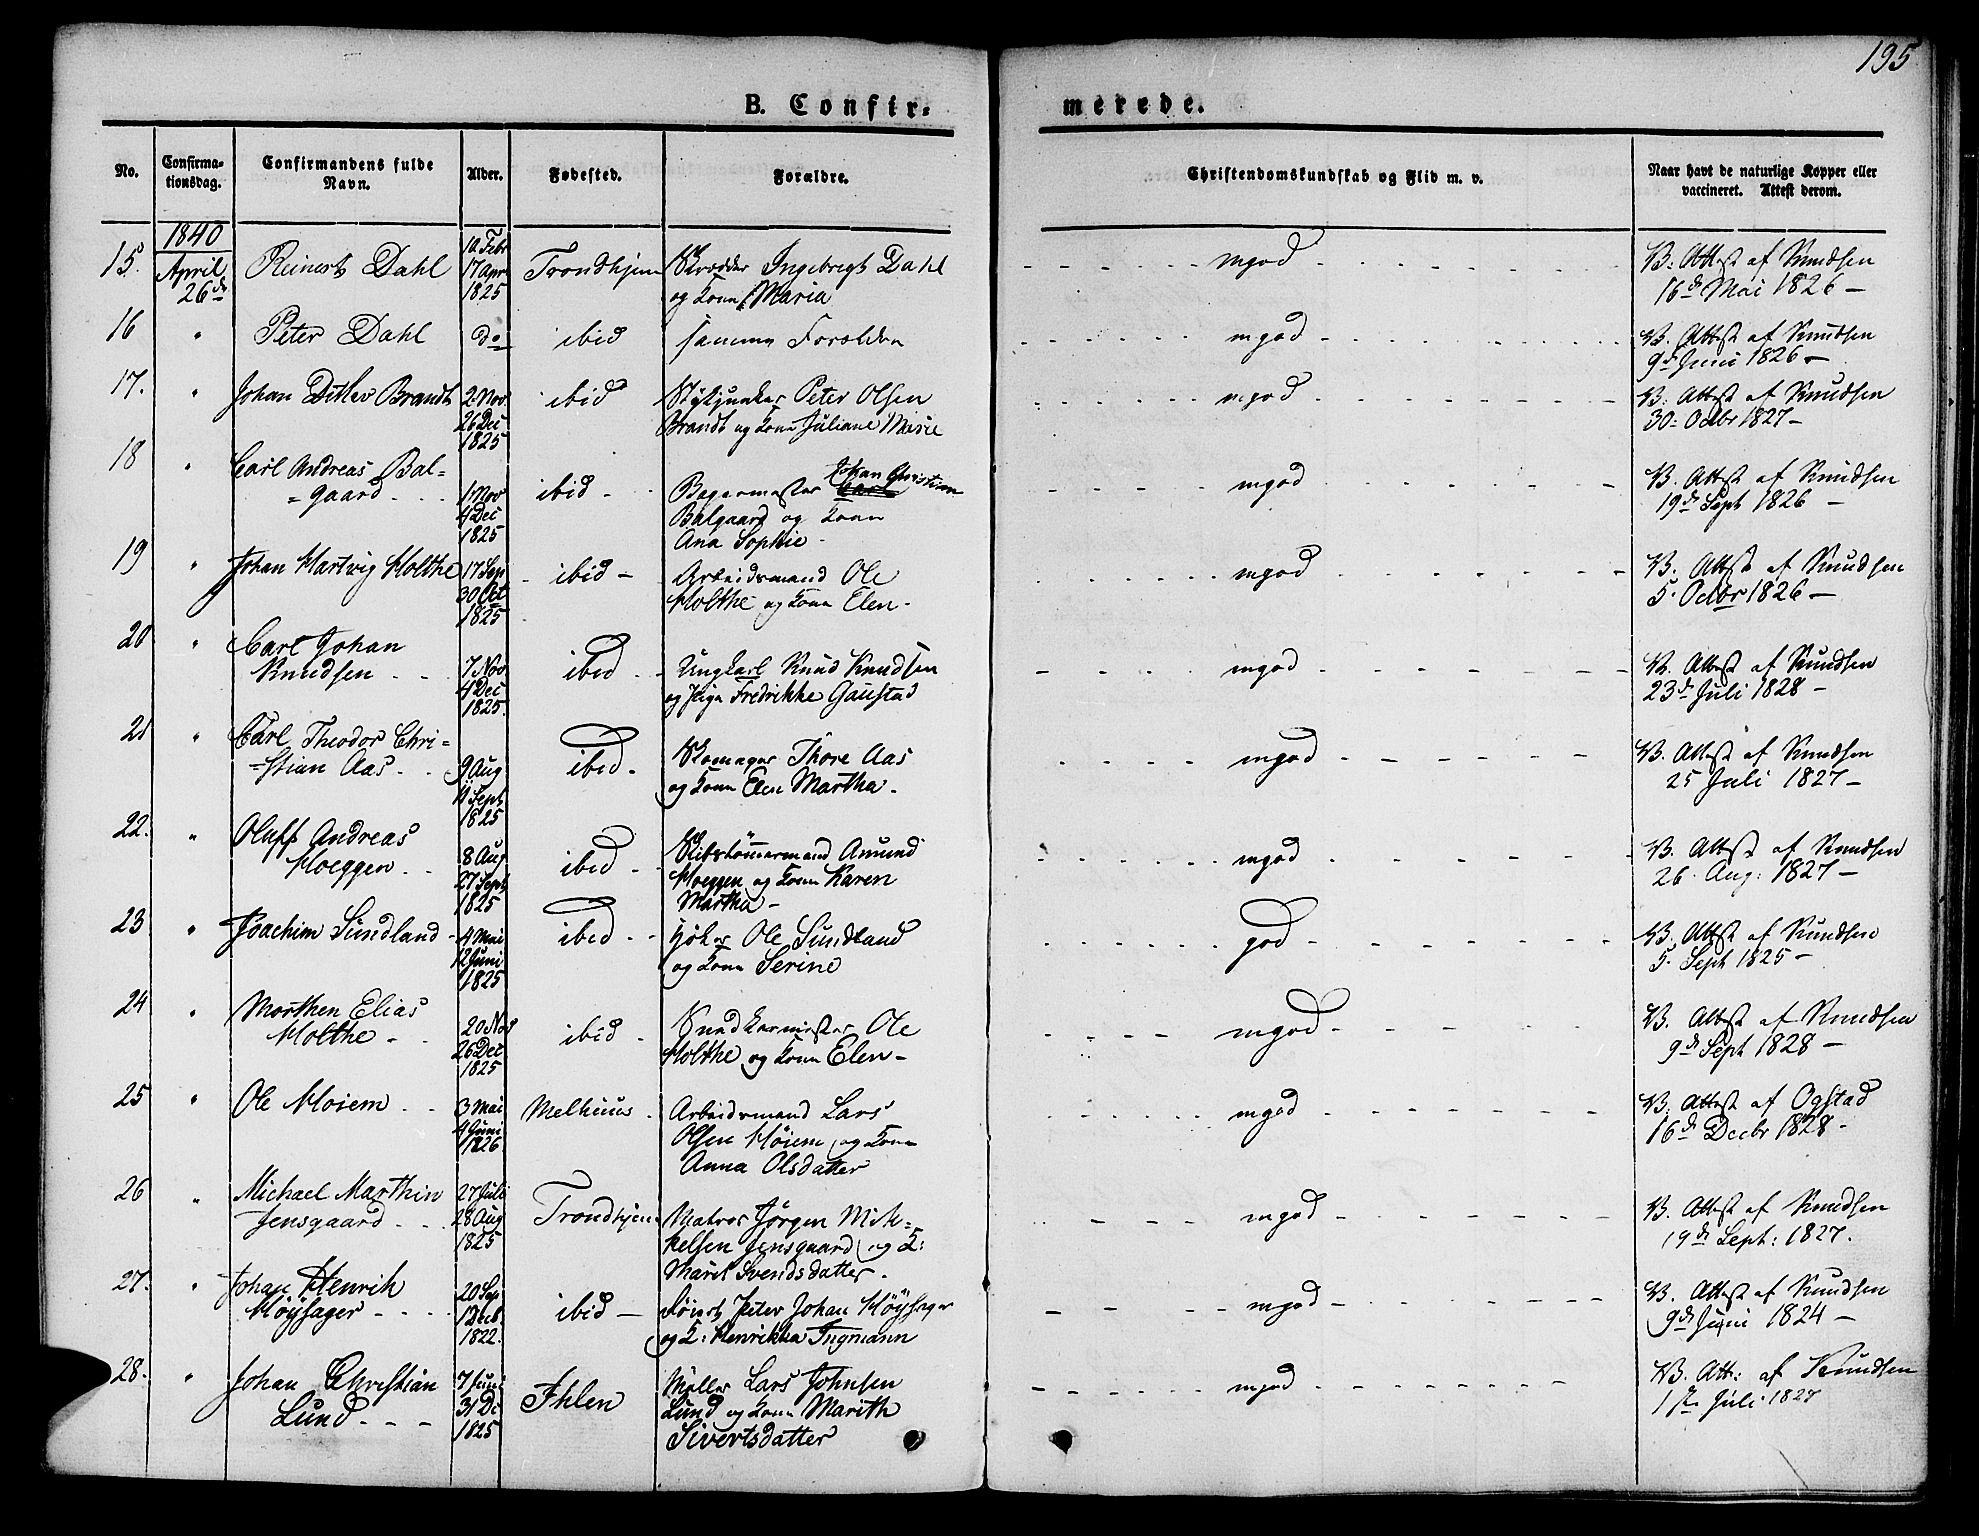 195
B. Confir-
merede.
No.
Confirma-
tionsdag.
Confirmandens fulde
Navn.
Alder.
Fødested.
Forældre.
Christendomskundskab og Flid m. v.
Naar havt de naturlige Kopper eller
vaccineret. Attest derom.
1840
15. April 26de Reinert Dahl 10 Febr 17 Apr 1825 Trondhjem Skrædder Ingebrigt Dahl
og Kone Maria
mgod
V. Attest af Knudsen
16de Mai 1826 –
16 " Peter Dahl do ibid samme Forældre
mgod
V. Attest af Knudsen
9de Juni 1826 –
17. " Johan Ditlev Brandt 2 Nov 26 Dec 1825 ibid Stykjunker Peter Olsen
Brandt og Kone Juliane Marie
mgod
V. Attest af Knudsen
30. Octbr 1827 –
18 " Carl Andreas Bal-
=gaard 1 Nov 4 Dec 1825 ibid Bagermester Johan Christian
Balgaard og Kone
Ana Sophie
mgod
V. Attest af Knudsen
19de Sept 1826 –
19 " Johan Hartvig Holthe 17 Sep 30 Oct 1825 ibid – Arbeidsmand Ole
Holthe og Kone Elen
mgod
V. Attest af Knudsen
5. Octbr 1826 –
20 " Carl Johan
Knudsen 7 Nov 4 Dec 1825 ibid Ungkarl Knud Knudsen
og Pige Fredrikke Gaustad
mgod
V. Attest af Knudsen
23de Juli 1828 –
21 " Carl Theodor Chri=
=stian Aas 9 Aug 11 Sept 1825 ibid Skomager Thore Aas
og Kone Elen Martha
mgod
V. Attest af Knudsen
25 Juli 1827 –
22. " Oluff Andreas
Hoeggen 8 Aug 27 Sept 1825 ibid Skibstømmermand Amund
Hoeggen og Kone Karen
Martha –
mgod
V. Attest af Knudsen
26 Aug: 1827 –
23 " Joachim Sundland 4 Mai 12 Juni 1825 ibid Ole Sundland
og Kone Serine
god
V. Attest af Knudsen
5. Sept 1825 –
24 " Morthen Elias
Holthe 20 Nov 26 Dec 1825 ibid Snedkermester Ole
Holthe og Kone Elen –
mgod
V. Attest af Knudsen
9de Sept 1828 –
25 " Ole Hoiem 3 Mai 4 Juni 1826 Melhuus Arbeidsmand Lars
Olsen Høiem og Kone
Anna Olsdatter
mgod
V. Attest af Ogstad
16de Decbr 1828 –
26 " Michael Marthin
Jensgaard 27 Juli 28 Aug 1825 Trondhjem Matros Jørgen Mik=
kelsen Jensgaard og K:
Marit Svendsdatter
mgod
V. Attest af Knudsen
19de Sept: 1827.
27. " Johan Henrik
Høysager 20 Sep 1 Decb. 1822. ibid – Peter Johan Høysager
og K: Henrikka Ingmann
mgod
V. Attest af Knudsen
9de Juni 1824 –
28. " Johan Christian
Lund 7 Juni 31 Di 1825 Ihlen Møller Lars Johnsen
Lund og Kone Marith
Sivertsdatter
mgod
V. Att: af Knudsen
1ste Juli 1827